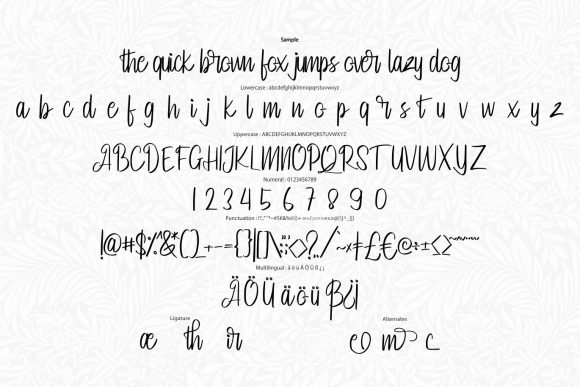 Sample
the quick brown fox jumps over lazy dog
Lowercase : abcdefghijklmnopqrstuvwxyz
a b c d e f g h i j k l m n o p q r s t u v w x y z
Uppercase : ABCDEFGHIJKLMNOPQRSTUVWXYZ
ABCDEFGHIJKLMNOPQRSTUVWXYZ
Numeral : 0123456789
1 2 3 4 5 6 7 8 9 0
Multilingual : ä ö ü Ä Ö Ü ß ¿ ¡
ÄÖÜäöüß¿¡
Ligature Alternates
æ th ir e m c